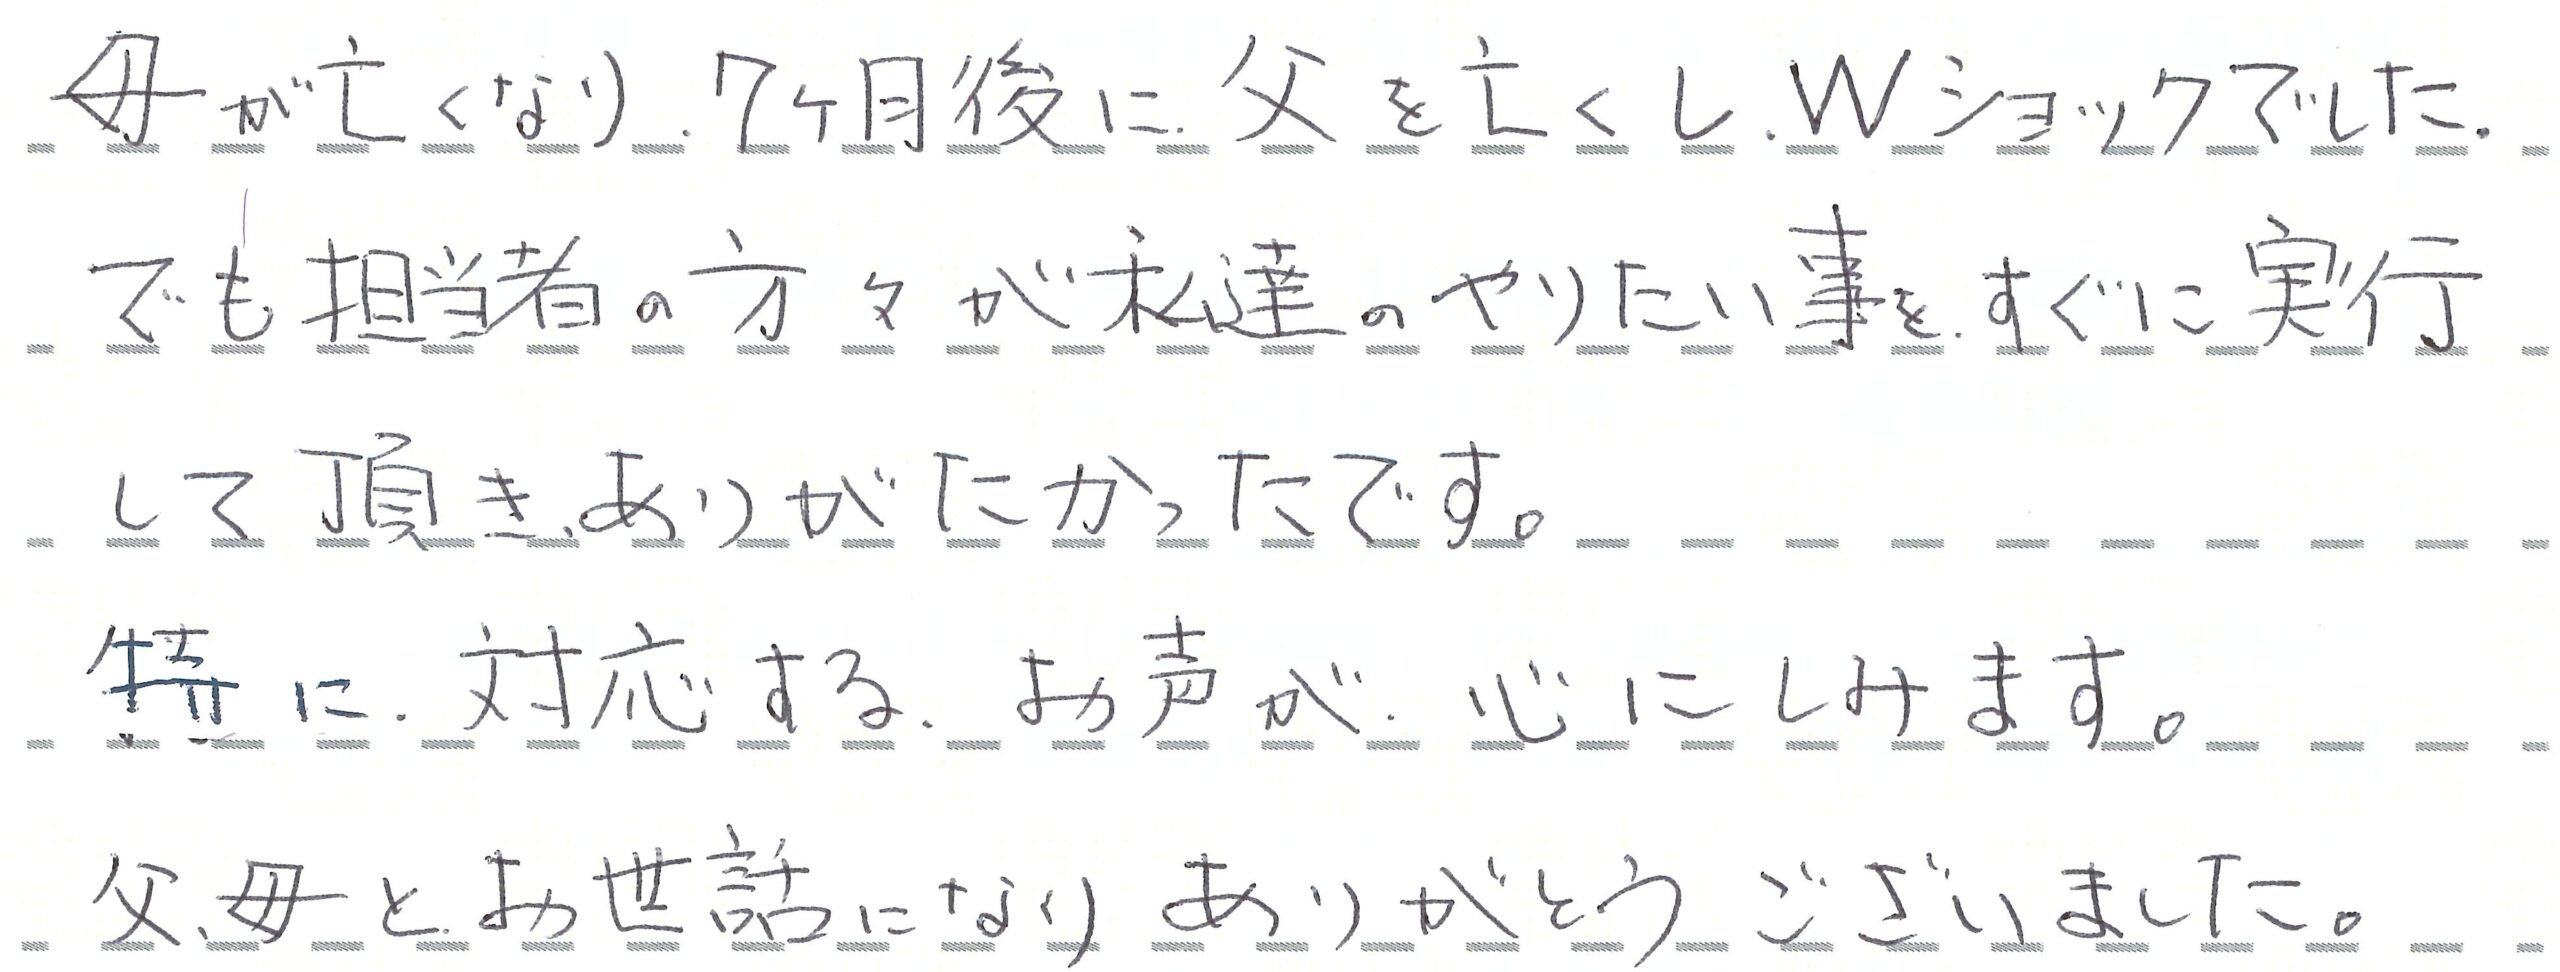 母が亡くなり、7ヶ月後に、父を亡くし、Wショックでした。
でも担当者の方々が私達のやりたい事を、すぐに実行
して頂き、ありがたかったです。
特に、対応する、お声が、心にしみます。
父、母と、お世話になりありがとうございました。